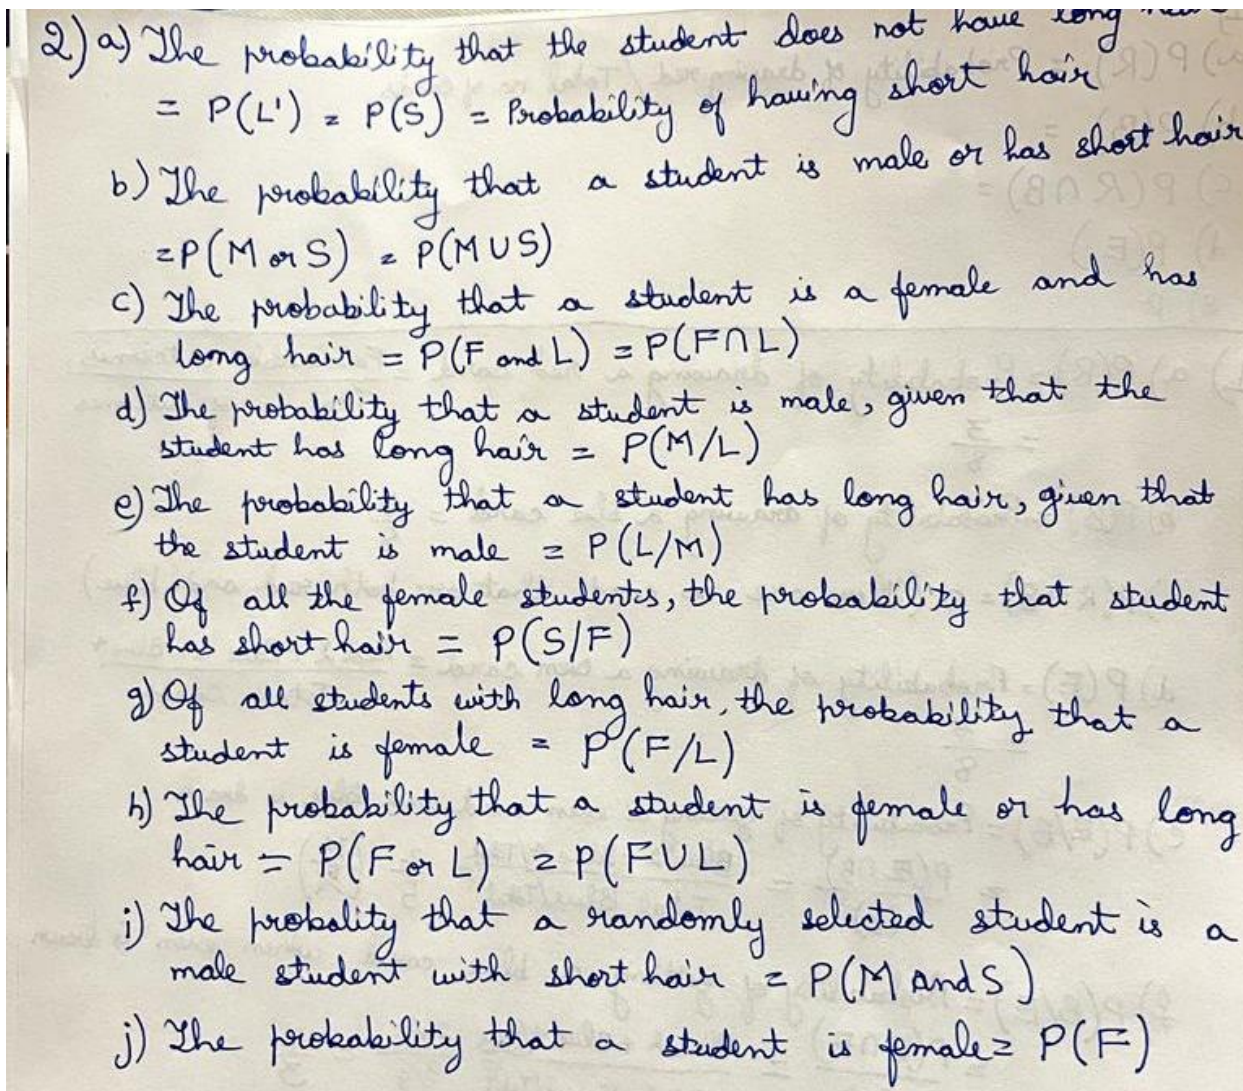 2) a) The probability that the student does not have long
= P(L') = P(S) = Probability of having short hair
b) The probability that a student is male or has short hair
=P(M or S) = P(M∪S)
c) The probability that a student is a female and has
long hair = P(F and L) = P(F∩L)
d) The probability that a student is male, given that the
student has long hair = P(M/L)
e) The probability that a student has long hair, given that
the student is male = P(L/M)
f) Of all the female students, the probability that student
has short hair = P(S/F)
g) Of all students with long hair, the probability that a
student is female = P(F/L)
h) The probability that a student is female or has long
hair = P(F or L) = P(F∪L)
i) The probality that a randomly selected student is a
male student with short hair = P(M And S)
j) The probability that a student is female = P(F)